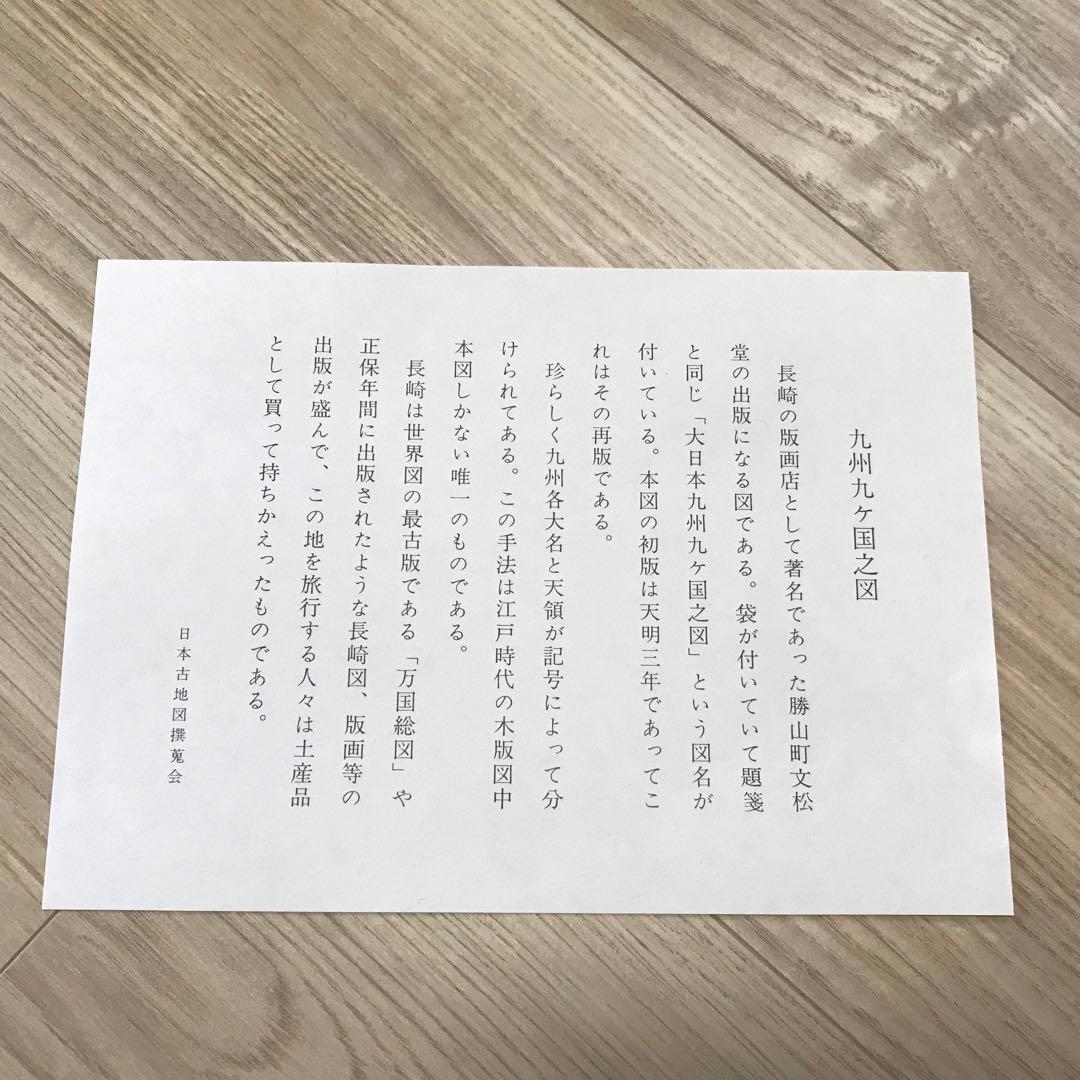 九州九ヶ国之図
長崎の版画店として著名であった勝山町文松
堂の出版になる図である。袋が付いていて題箋
と同じ「大日本九州九ヶ国之図」という図名が
付いている。本図の初版は天明三年であってこ
れはその再版である。
珍らしく九州各大名と天領が記号によって分
けられてある。この手法は江戸時代の木版図中
本図しかない唯一のものである。
長崎は世界図の最古版である「万国総図」や
正保年間に出版されたような長崎図、版画等の
出版が盛んで、この地を旅行する人々は土産品
として買って持ちかえったものである。
日本古地図撰蒐会